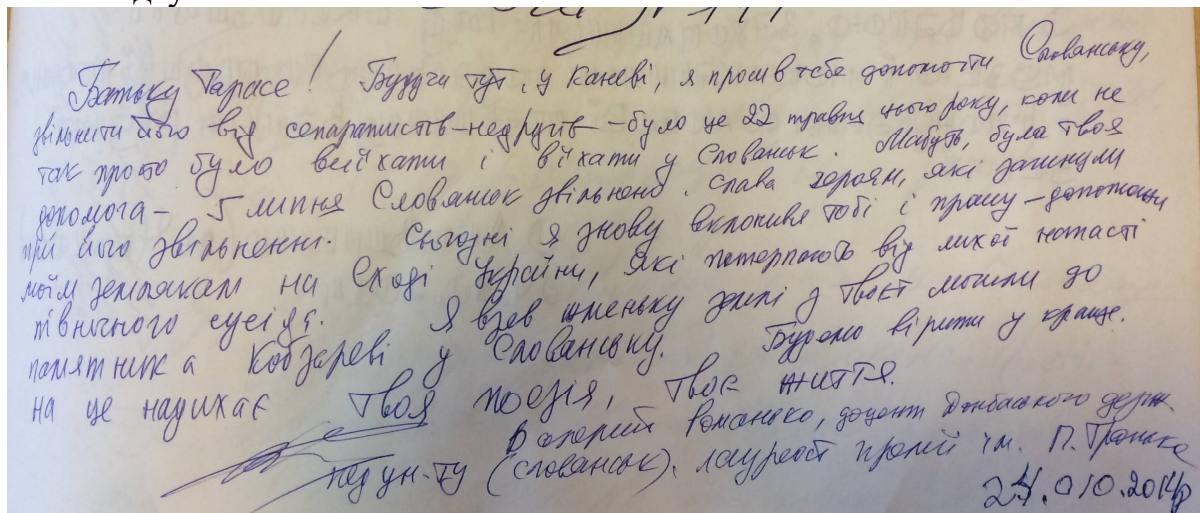 Батьку Тарасе! Будучи тут, у Каневі, я просив тебе допомогти Словянську,
звільнити його від сепаратистів-недругів – було це 22 травня цього року, коли не
так просто було виїхати і вїхати у Словянськ. Мабуть, була Твоя
допомога – 5 липня Словянськ звільнено. Слава героям, які загинули
при його звільненні. Сьогодні я знову вклонився тобі і прошу – допоможи
моїм землякам на Сході України, які потерпають від лихої напасті
північного сусіда. Я взяв жменьку землі з Твоєї могили до
памятника Кобзареві у Словянську. Будемо вірити у краще.
на це надихає Твоя поезія, Твоє життя.
Валерій Романько, доцент Донбаського держ
пед ун-ту (Словянськ). лауреат премії ім. П. Тронька
2014р